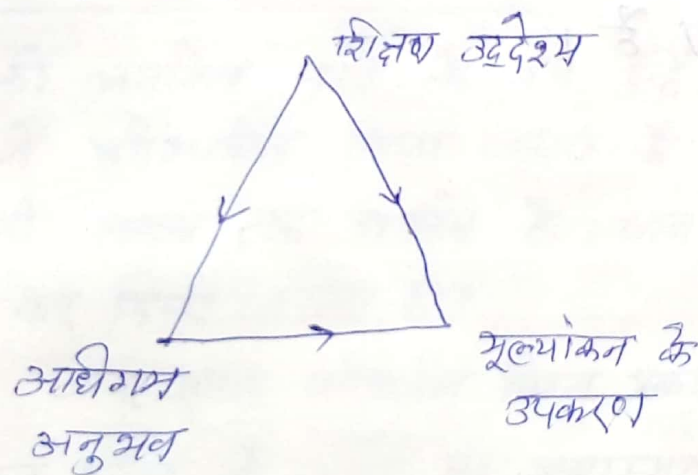 शिक्षण उद्देश्य
अधिगम
अनुभव
मूल्यांकन के
उपकरण